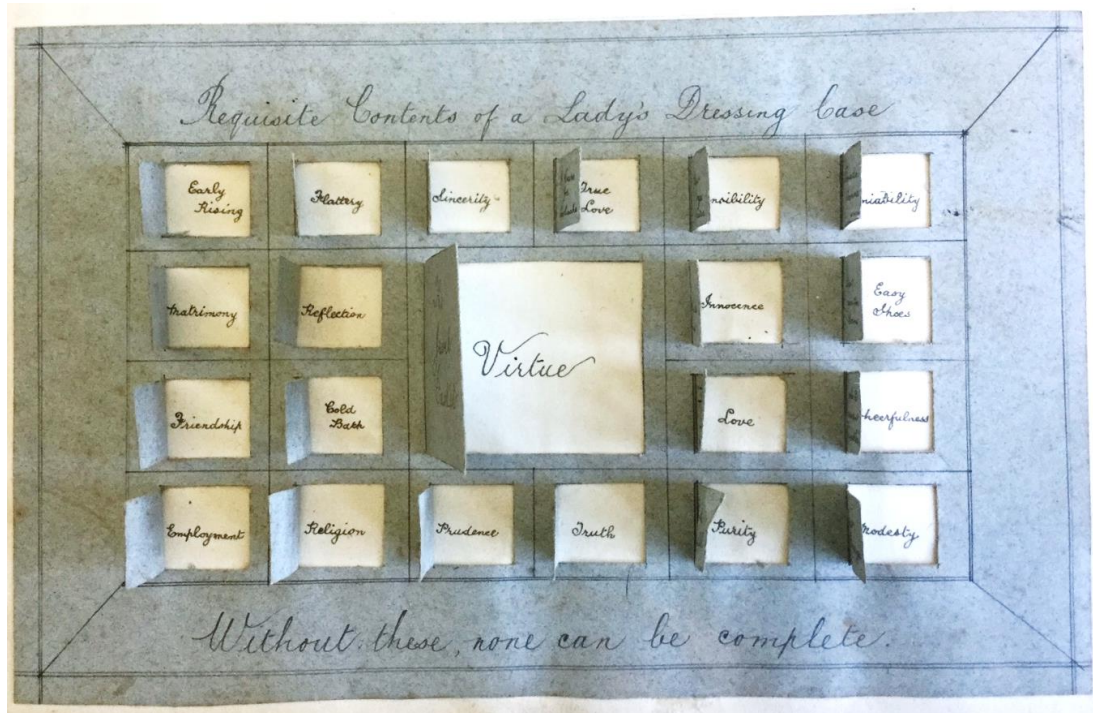 Requisite Contents of a Lady's Dressing Case
Early
Rising
Flattery
Sincerity
True
Love
nsibility
miability
Matrimony
Reflection
Virtue
Innocence
Easy
Shoes
Friendship
Cold
Bath
Love
heerfulness
Employment
Religion
Prudence
Truth
Purity
Modesty
Without these, none can be complete.